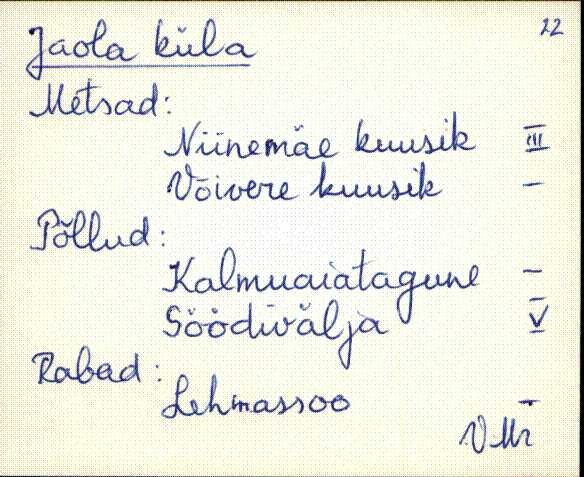 22
Jaola küla
Metsad:
Niinemäe kuusik III
Võivere kuusik –
Põllud:
Kalmuaiatagune –
Söödivälja V
Rabad:
Lehmassoo –
VMr